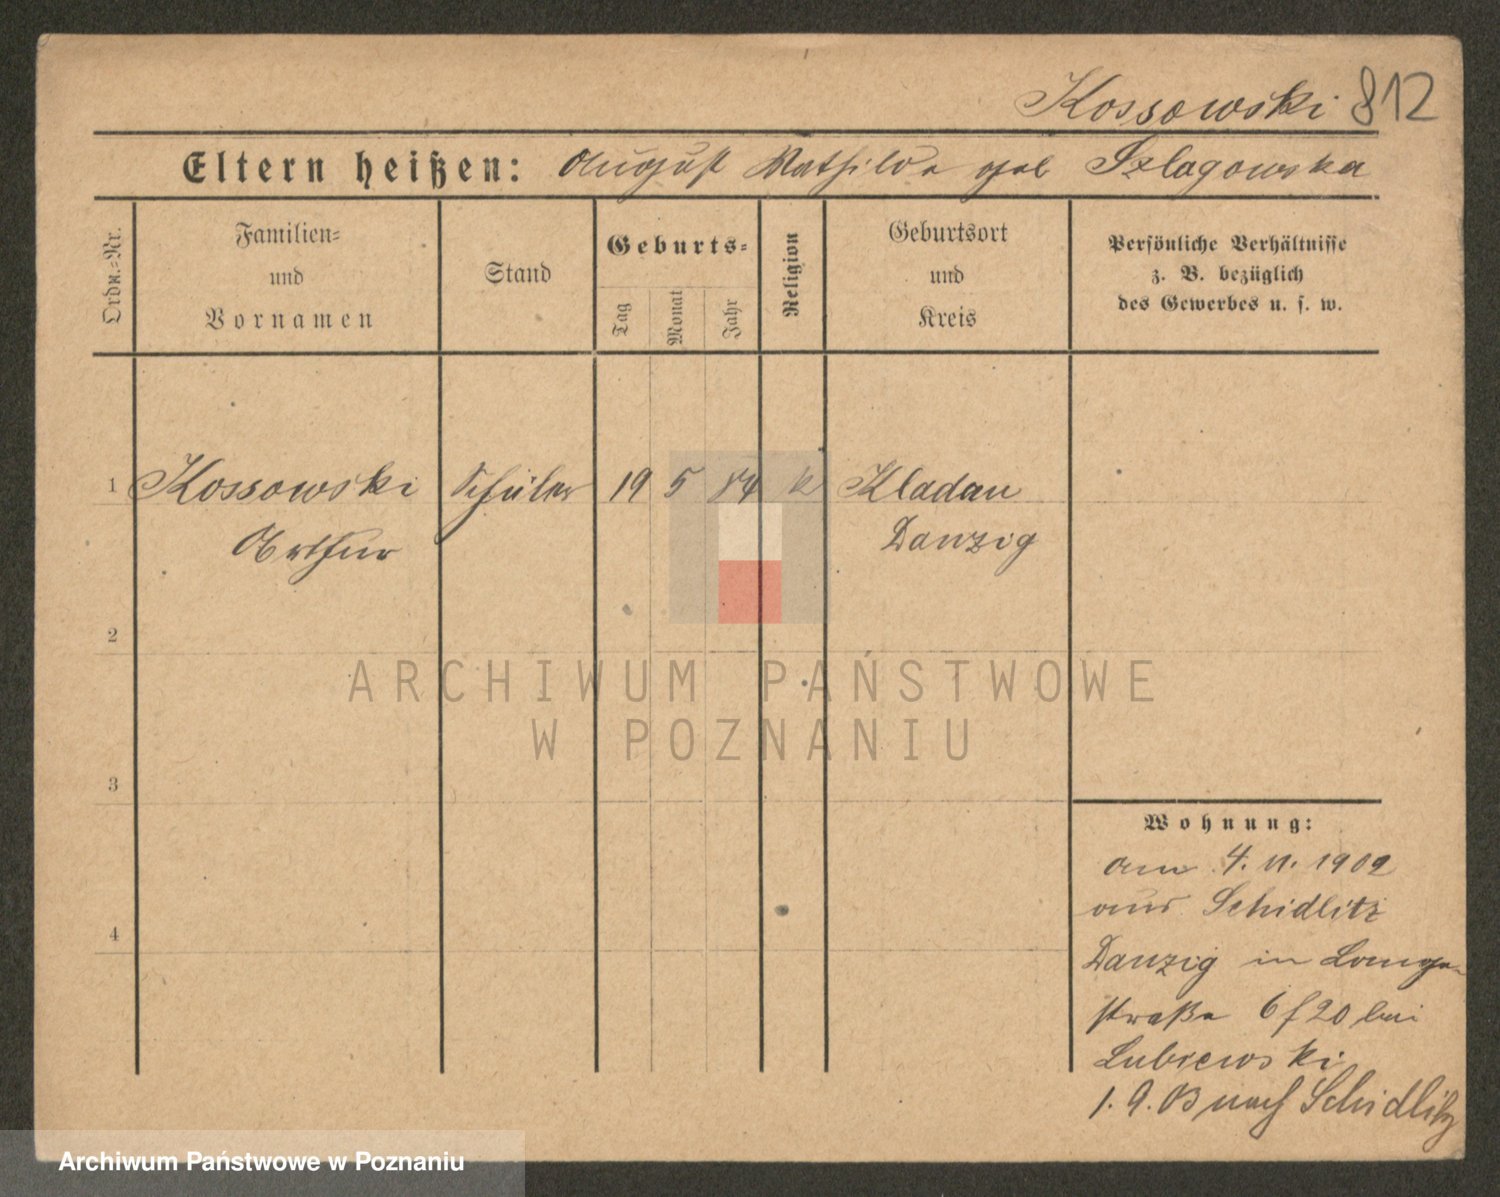 Kossowski 812
Eltern heißen: August Mathilde geb Szlagowska
Ordn.-Nr.
Familien-
und
Vornamen
Stand
Geburts-
Tag
Monat
Jahr
Religion
Geburtsort
und
Kreis
Persönliche Verhältnisse
z. B. bezüglich
des Gewerbes u. s. w.
1 Kossowski Schüler 19 5 84 k Kladau
Arthur Danzig
2
3
4
Wohnung:
am 4. 11. 1902
aus Schidlitz
Danzig in Lange-
straße 6 f 20 bei
Lubiewski
1. 9. 03 nach Schidlitz
ARCHIWUM PAŃSTWOWE
W POZNANIU
Archiwum Państwowe w Poznaniu